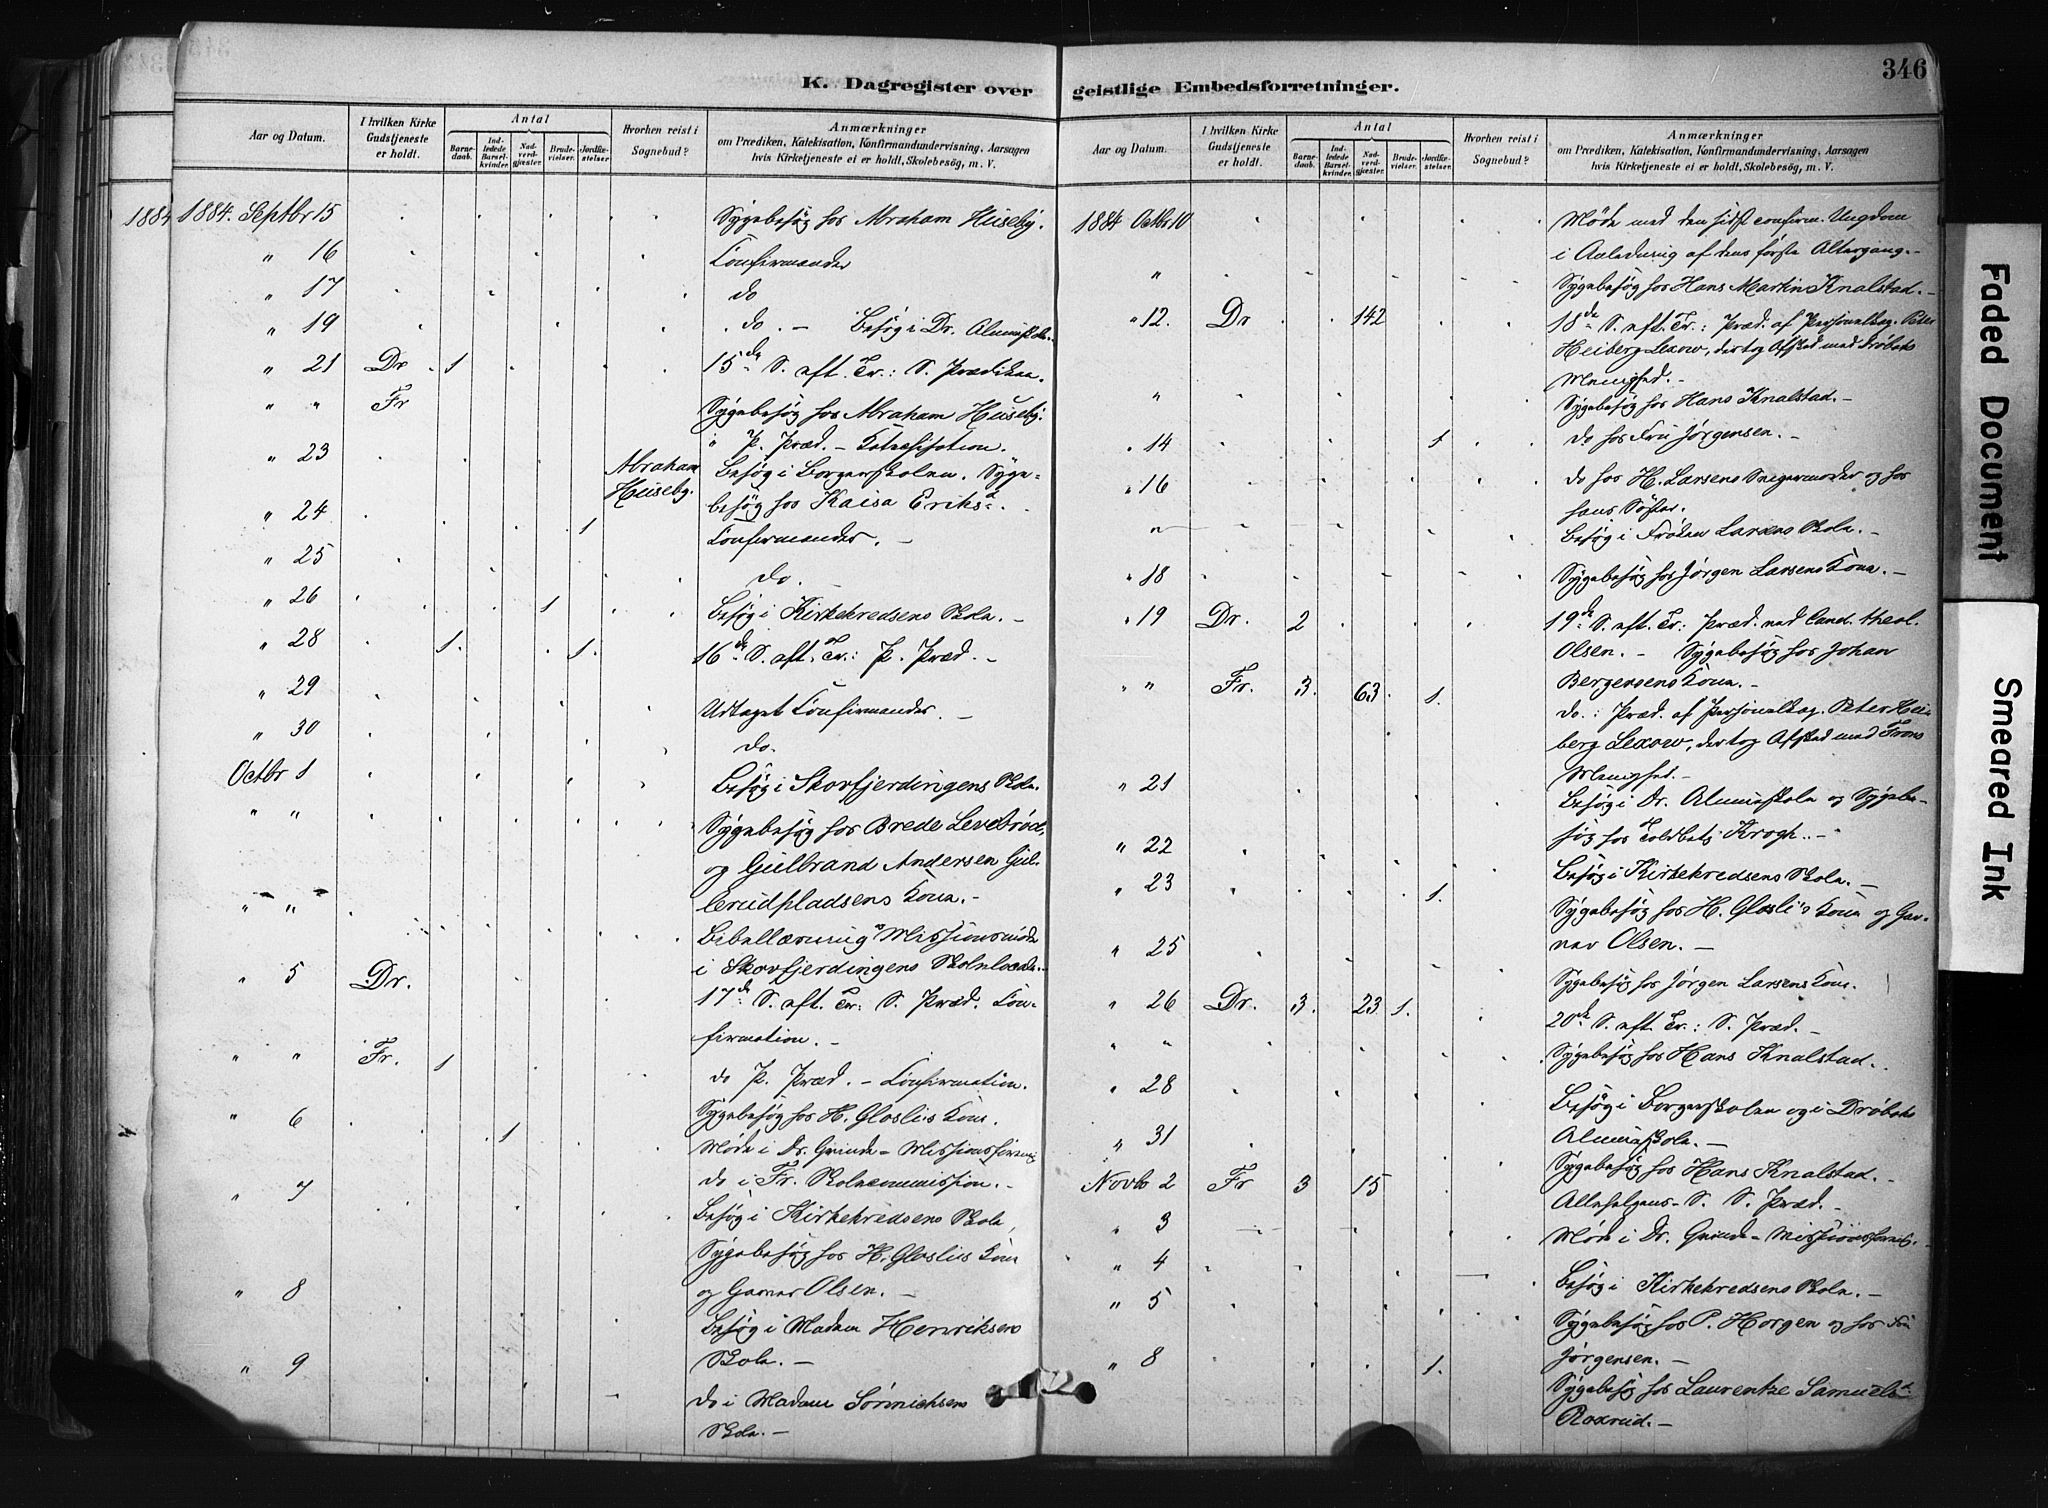 346
K. Dagregister over geistlige Embedsforretninger.
Aar og Datum.
I hvilken Kirke Gudstjeneste er holdt.
Antal
Barnedaab.
Indledede Barselkvinder.
Nadverdgjæster.
Brudevielser.
Jordfæstelser
Hvorhen reist i Sognebud?
Anmærkninger
om Prædiken, Katekisation, Konfirmandundervisning, Aarsagen
hvis Kirketjeneste ei er holdt, Skolebesög, m. V.
1884 1884. Septbr 15 Sygebesøg hos Abraham Huseby.
" 16 Confirmander
" 17 do
" 19 do. - Besøg i Dr. Almueskole.
" 21 Dr 1 15de S. aft. Tr.: S. Prædiken.
" " Fr Sygebesøg hos Abraham Huseby.
" P. Præd. - Katechisation.
" 23 Abraham Huseby. Besøg i Borgerskolen. Syge-
besøg hos Kaisa Eriksd.
" 24 1 Confirmander. -
" 25 do.
" 26 1 Besøg i Kirkekredsens Skole. -
" 28 1. 1. 16de S. aft. Tr.: P. Præd. -
" 29 Udtaget Confirmander. -
" 30 do.
Octbr 1 Besøg i Skovfjerdingens Skole.
" " Sygebesøg hos Brede Levebrød,
og Gulbrand Andersen Gul-
lerudpladsens Kone. -
" " Bibellæsning Missionsmøde
i Skovfjerdingens Skolelocale.
" 5 Dr. 17de S. aft. Tr: S. Præd. Con-
firmation. -
" " Fr. 1 do P. Præd. - Confirmation.
" 6 1 Sygebesøg hos H. Gloslis Kone.
Møde i Dr. Qvinde-Missionsforening
do i Fr. Skolecommission. -
" 7 Besøg i Kirkekredsens Skole,
Sygebesøg hos H. Gloslis Kone
og Garver Olsen. -
" 8 Besøg i Madam Henriksens
Skole. -
" 9 do i Madam Sørnichsens
Skole. -
Aar og Datum.
I hvilken Kirke Gudstjeneste er holdt.
Antal
Barnedaab.
Indledede Barselkvinder.
Nadverdgjæster.
Brudevielser.
Jordfæstelser
Hvorhen reist i Sognebud?
Anmærkninger
om Prædiken, Katekisation, Konfirmandundervisning, Aarsagen
hvis Kirketjeneste ei er holdt, Skolebesög, m. V.
1884 Octbr 10 Møde med den sidst confirm. Ungdom
i Anledning af dens første Altergang. -
" Sygebesøg hos Hans Martin Knalstad. -
" 12. Dr 142 18de S. aft. Tr.: Præd. af Personelkap. Peter
Heiberg Lexow, der tog Afsked med Drøbaks
Menighed. -
" Sygebesøg hos Hans Knalstad. -
" 14 1 do hos Fru Jørgensen. -
" 16 do hos H. Larsens Svigermoder og hos
hans Søster.
" Besøg i Frøken Larsens Skole. -
" 18 Sygebesøg hos Jørgen Larsens Kone. -
" 19 Dr. 2 19de S. aft. Tr: Præd. ved Cand. theol.
Olsen. - Sygebesøg hos Johan
Bergersens Kone. -
" " Fr. 3. 63 1. do.: Præd. af Personelkap. Peter Hei-
berg Lexow, der tog Afsked med Frons
Menighed. -
" 21 Besøg i Dr. Almueskole og Sygebe-
søg hos Toldbetj Krogh. -
" 22 Besøg i Kirkekredsens Skole. -
" 23 1. Sygebesøg hos H. Glosli's Kone og Gar-
ver Olsen. -
" 25 Sygebesøg hos Jørgen Larsens Kone.
" 26 Dr. 3. 23 1. 20de S. aft. Tr.: S. Præd. -
" " Sygebesøg hos Hans Knalstad.
" 28 Besøg i Borgerskolen og i Drøbaks
Almueskole. -
" 31 Sygebesøg hos Hans Knalstad. -
Novb 2 Fr 3 15 Allehelgens-S. S. Præd. -
" 3 Møde i Dr. Qvinde-Missionsforening. -
" 4 Besøg i Kirkekredsens Skole. -
" 5 Sygebesøg hos P. Horgen og hos Fru
Jørgensen. -
" 8 1. Sygebesøg hos Laurentze Samuelsd.
Roxrud. -
Faded Document
Smeared Ink